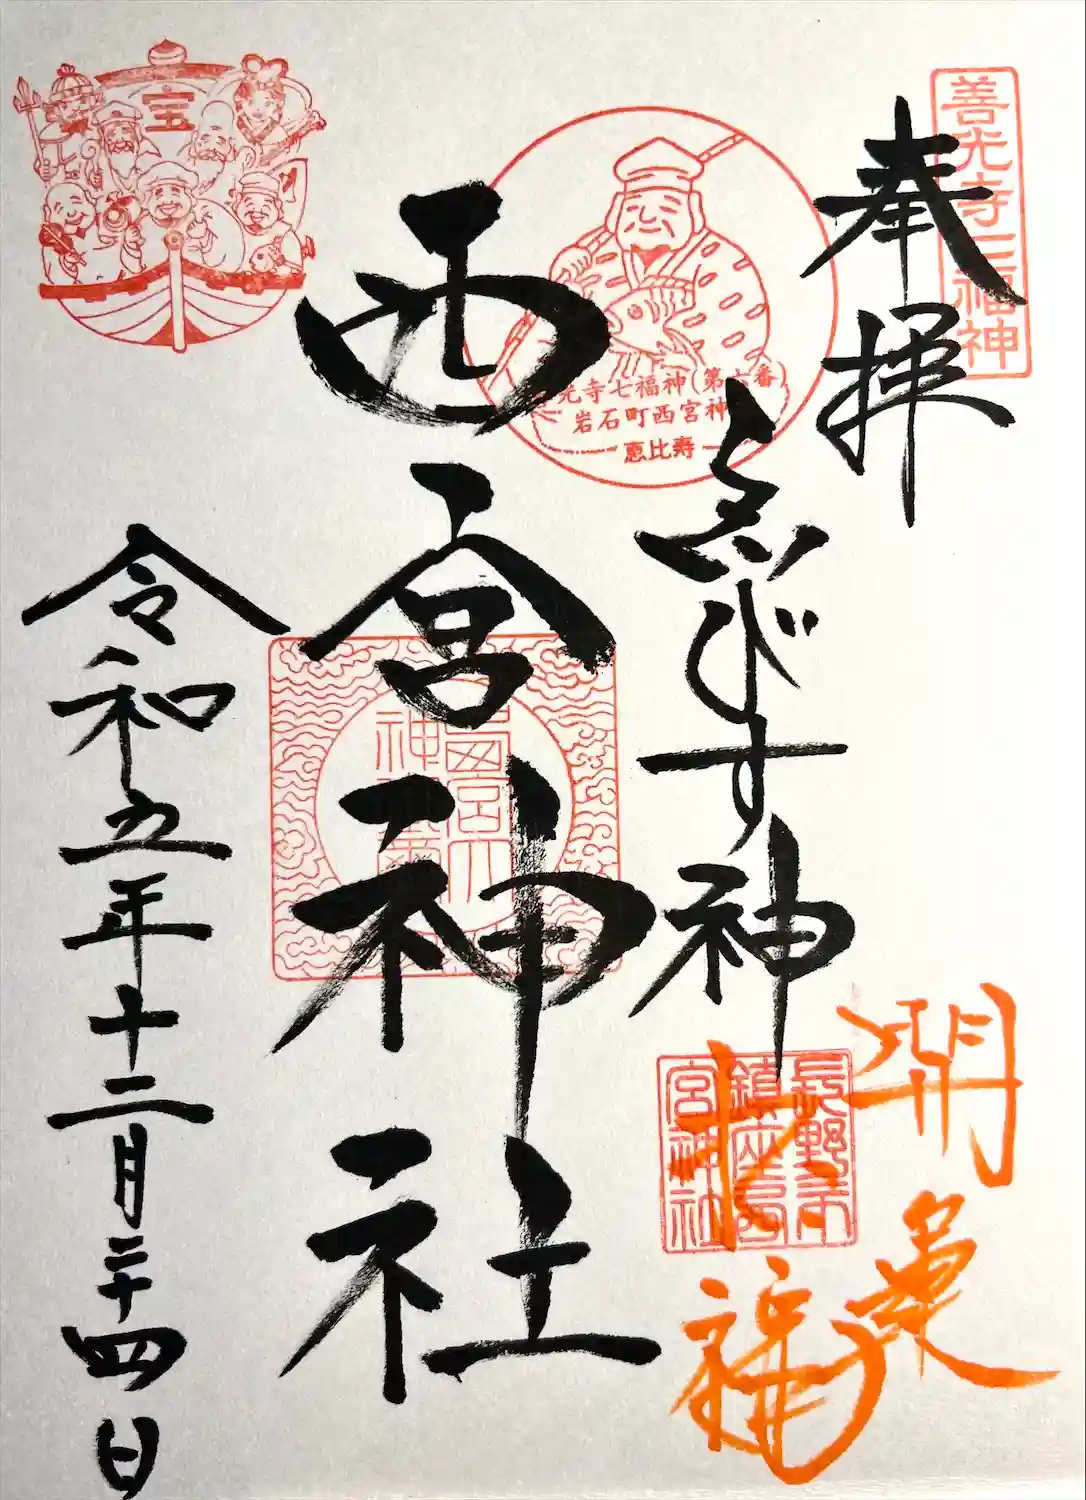 善光寺七福神
奉拝
ゑびす神
開運
招福
長野市
鎮座西
宮神社
光寺七福神(第六番)
岩石町西宮神
恵比寿
西宮神社
宝
令和五年十二月二十四日